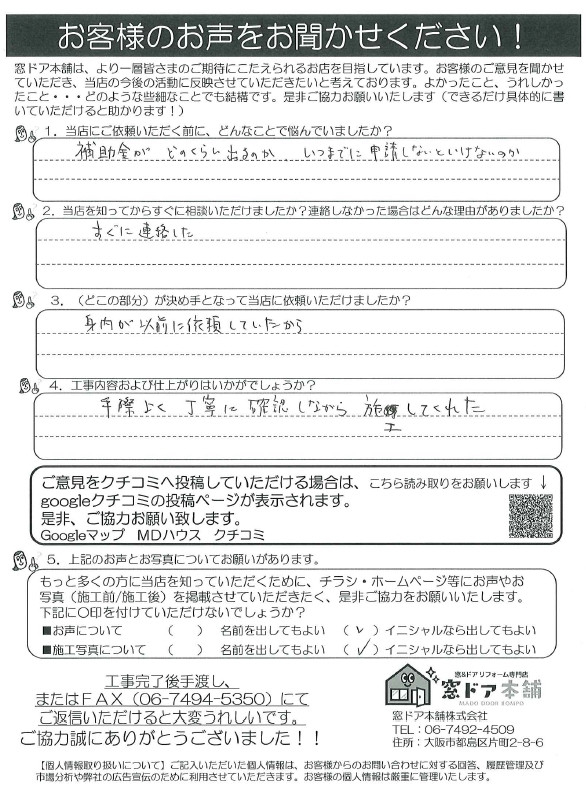 お客様のお声をお聞かせください！
窓ドア本舗は、より一層皆さまのご期待にこたえられるお店を目指しています。お客様のご意見を聞かせ
ていただき、当店の今後の活動に反映させていただきたいと考えております。よかったこと、うれしかっ
たこと・・・どのような些細なことでも結構です。是非ご協力お願いいたします（できるだけ具体的に書
いていただけると助かります！）
1．当店にご依頼いただく前に、どんなことで悩んでいましたか？
補助金が どのくらい出るのか いつまでに申請しないといけないのか
2．当店を知ってからすぐに相談いただけましたか？連絡しなかった場合はどんな理由がありましたか？
すぐに連絡した
3．（どこの部分）が決め手となって当店に依頼いただけましたか？
身内が以前に依頼していたから
4．工事内容および仕上がりはいかがでしょうか？
手際よく 丁寧に確認しながら 施工してくれた
ご意見をクチコミへ投稿していただける場合は、こちら読み取りをお願いします ↓
googleクチコミの投稿ページが表示されます。
是非、ご協力お願い致します。
Googleマップ MDハウス クチコミ
5．上記のお声とお写真についてお願いがあります。
もっと多くの方に当店を知っていただくために、チラシ・ホームページ等にお声やお
写真（施工前/施工後）を掲載させていただきたく、是非ご協力をお願いいたします。
下記に〇印を付けていただけないでしょうか？
■お声について （ ） 名前を出してもよい （✓）イニシャルなら出してもよい
■施工写真について （ ） 名前を出してもよい （✓）イニシャルなら出してもよい
工事完了後手渡し、
またはＦＡＸ（06-7494-5350）にて
ご返信いただけると大変うれしいです。
ご協力誠にありがとうございました！！
窓&ドアリフォーム専門店
窓ドア本舗
MADO DOOR HOMPO
窓ドア本舗株式会社
TEL：06-7492-4509
住所：大阪市都島区片町2-8-6
【個人情報取り扱いについて】ご記入いただいた個人情報は、お客様からのお問い合わせに対する回答、履歴管理及び
市場分析や弊社の広告宣伝のために利用させていただきます。お客様の個人情報は厳重に管理いたします。